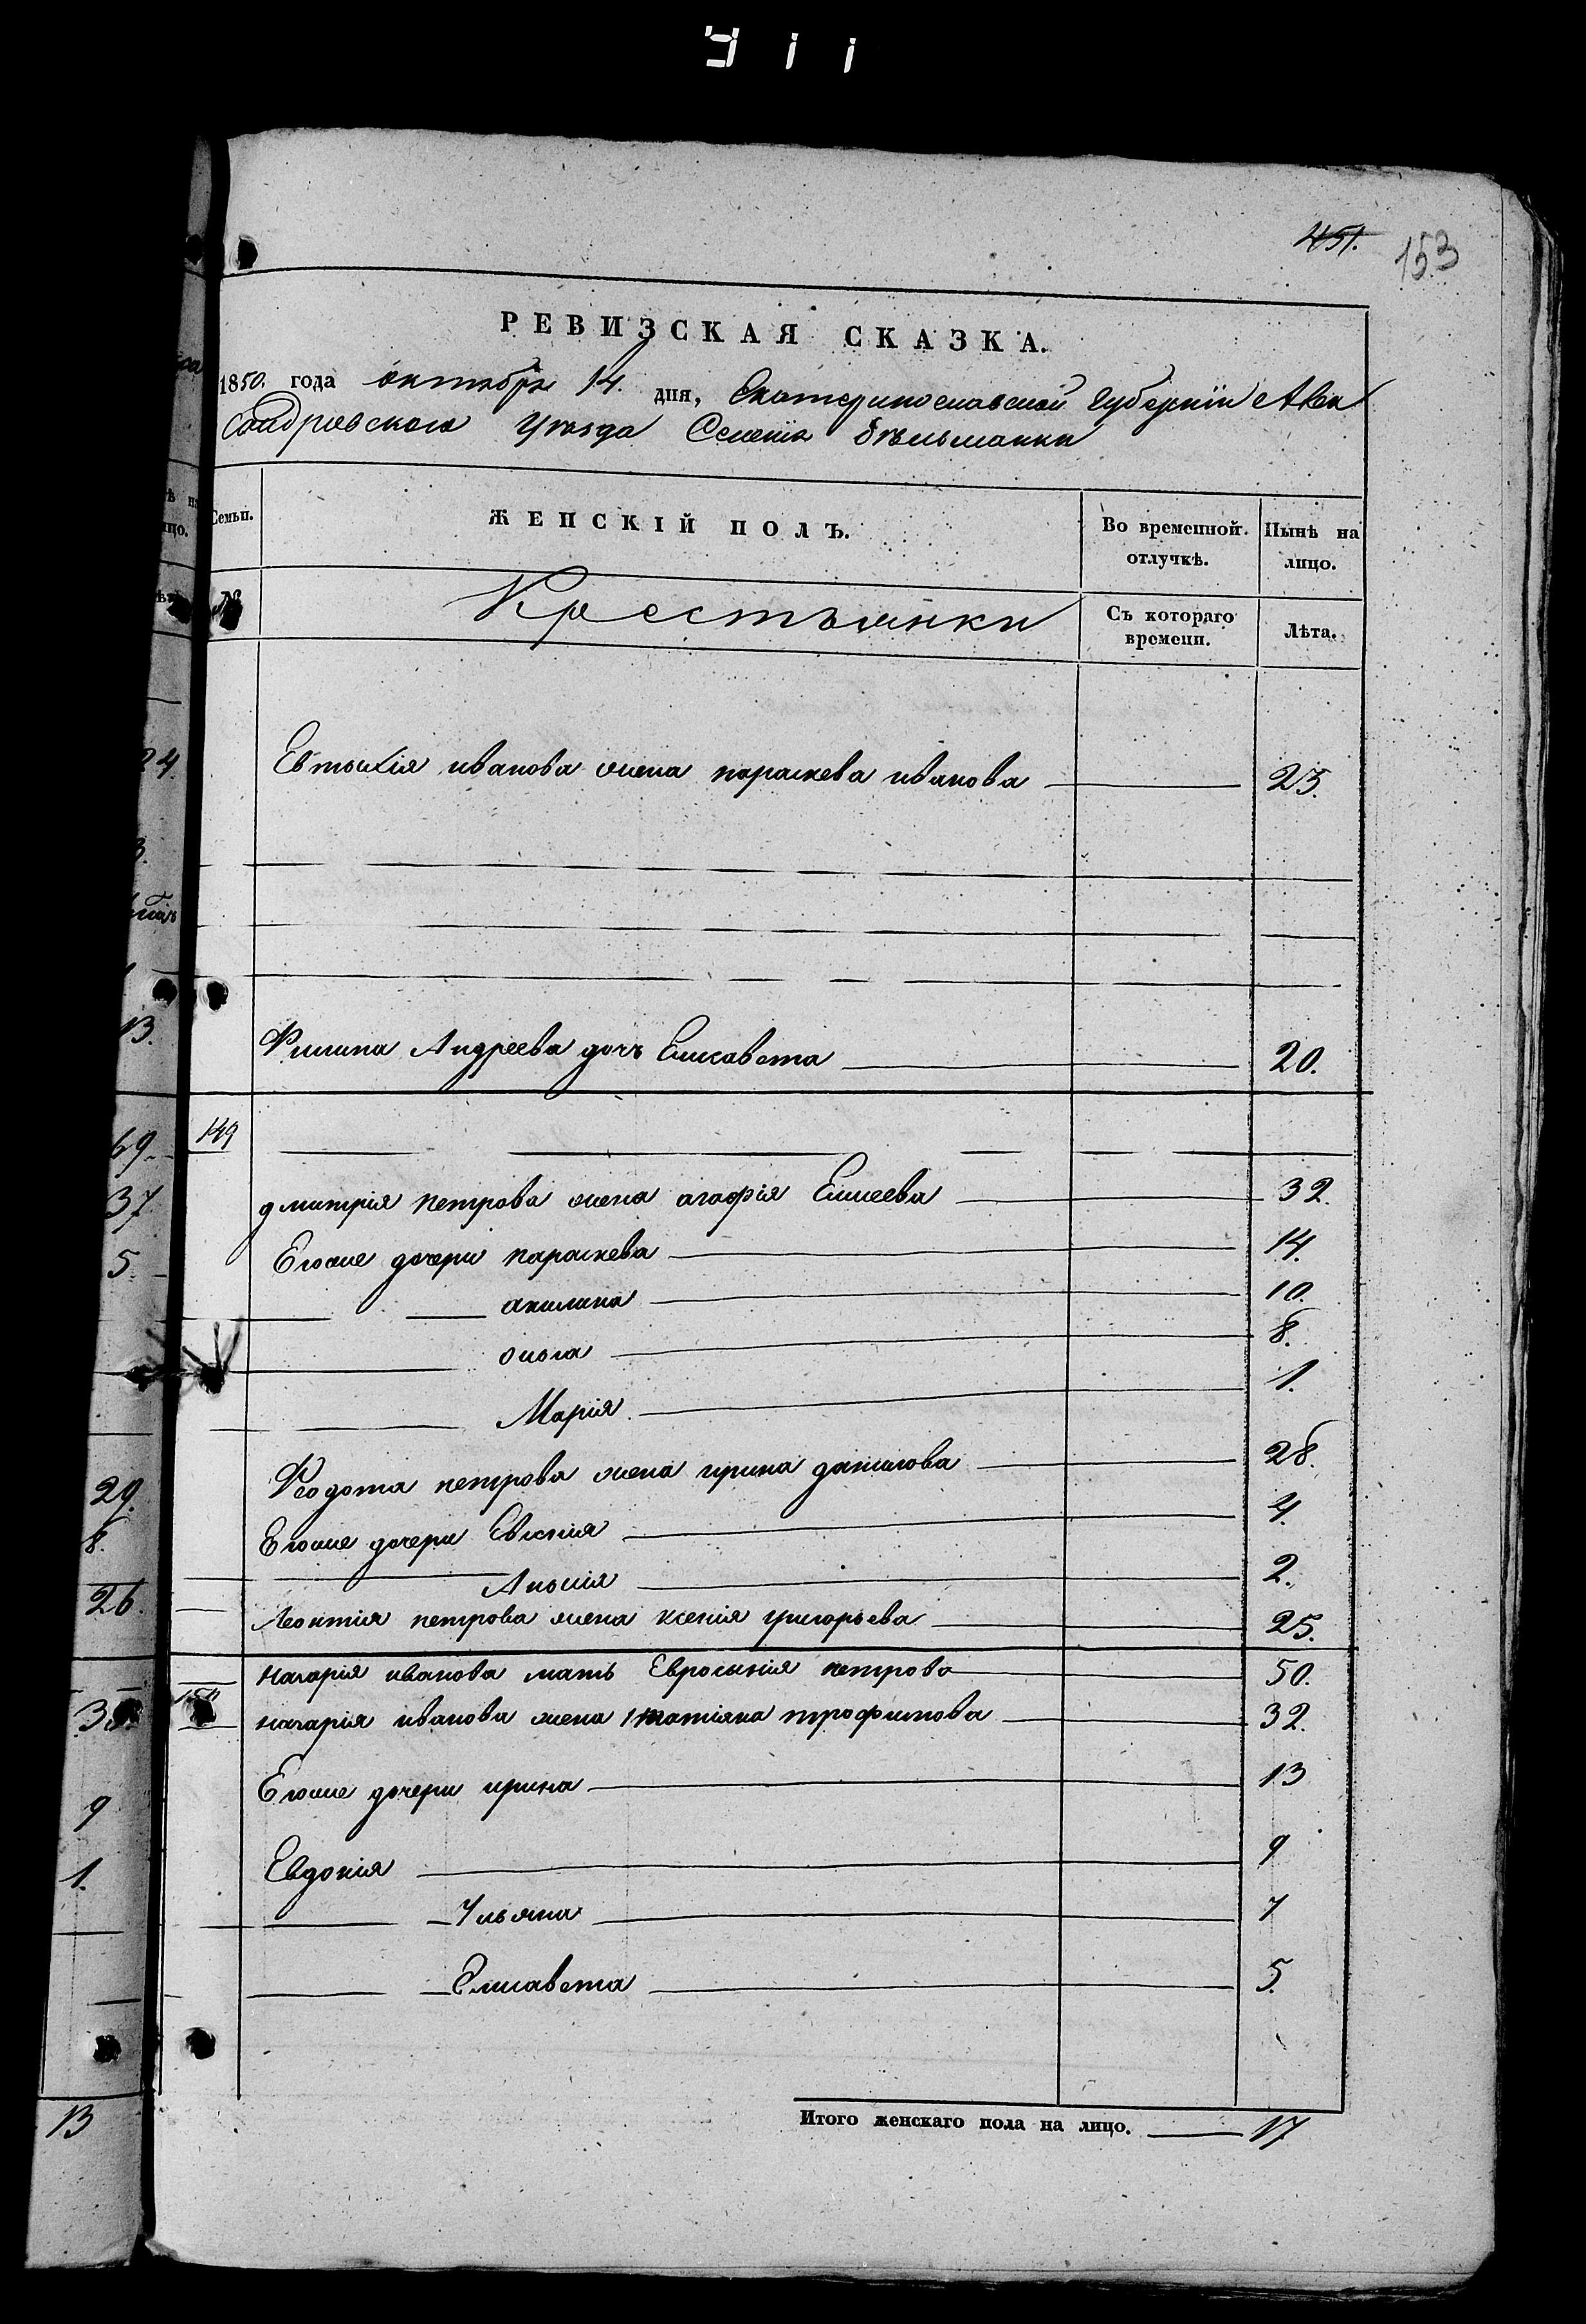 911
451.
153
РЕВИЗСКАЯ СКАЗКА.
1850. года октября 14. дня, Екатеринославской Губерніи Алек
сандровскаго Уѣзда Селенія бѣльманки
Семьи. ЖЕНСКІЙ ПОЛЪ. Во временной отлучкѣ. Нынѣ на лицо.
№ Крестьянки Съ котораго времени. Лѣта.
Евтихія иванова жена параскева иванова 23.
Филипа Андреева дочь Елисавета 20.
149
дмитрія петрова жена агафія Елисеева 32.
Егоже дочери параскева 14.
акилина 10.
ольга 8.
Марія 1.
Феодота петрова жена ирина данилова 28.
Егоже дочери Евгенія 4.
2.
Леонтія петрова жена ксенія григорьева 25.
иванова мать Евросинія петрова 50.
150 иванова жена татіяна трофимова 32.
Егоже дочери ирина 13
Евдокія 9
Ульяна 7
Елисавета 5.
Итого женскаго пола на лицо. 17
24.
3.
13.
69.
37
5.
29.
8.
26.
35.
9
1.
13